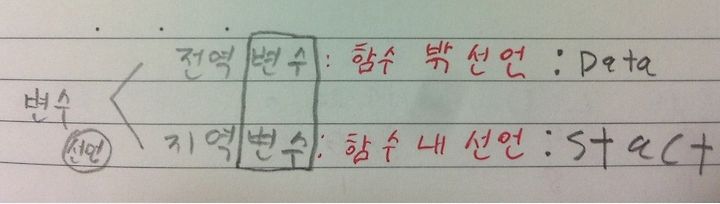 전역 변수 : 함수 밖 선언 : Data
변수
선언
지역 변수 : 함수 내 선언 : Stact